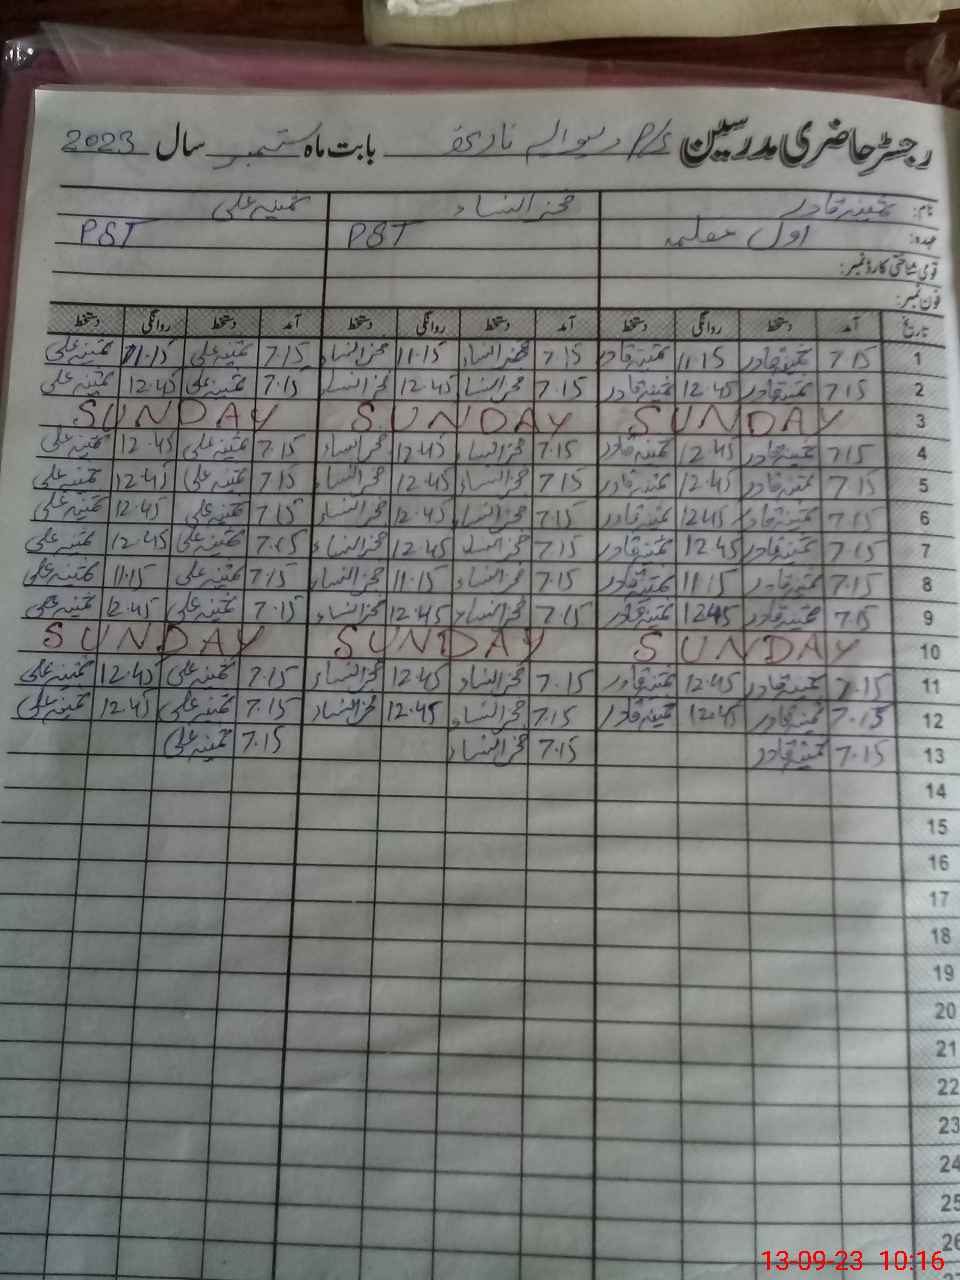 رجسٹر حاضری مدرسین P/S بابت ماہ ستمبر سال 2023
نام: ثمینہ قادر فخر النساء ثمینہ علی
عہدہ: اول معلمہ PST PST
قومی شناختی کارڈ نمبر:
فون نمبر:
تاریخ آمد دستخط روانگی دستخط آمد دستخط روانگی دستخط آمد دستخط روانگی دستخط
1 7.15 ثمینہ قادر 11.15 ثمینہ قادر 7.15 فخر النساء 11.15 فخر النساء 7.15 ثمینہ علی 11.15 ثمینہ علی
2 7.15 ثمینہ قادر 12.45 ثمینہ قادر 7.15 فخر النساء 12.45 فخر النساء 7.15 ثمینہ علی 12.45 ثمینہ علی
3 SUNDAY SUNDAY SUNDAY
4 7.15 ثمینہ قادر 12.45 ثمینہ قادر 7.15 فخر النساء 12.45 فخر النساء 7.15 ثمینہ علی 12.45 ثمینہ علی
5 7.15 ثمینہ قادر 12.45 ثمینہ قادر 7.15 فخر النساء 12.45 فخر النساء 7.15 ثمینہ علی 12.45 ثمینہ علی
6 7.15 ثمینہ قادر 12.45 ثمینہ قادر 7.15 فخر النساء 12.45 فخر النساء 7.15 ثمینہ علی 12.45 ثمینہ علی
7 7.15 ثمینہ قادر 12.45 ثمینہ قادر 7.15 فخر النساء 12.45 فخر النساء 7.15 ثمینہ علی 12.45 ثمینہ علی
8 7.15 ثمینہ قادر 11.15 ثمینہ قادر 7.15 فخر النساء 11.15 فخر النساء 7.15 ثمینہ علی 11.15 ثمینہ علی
9 7.15 ثمینہ قادر 12.45 ثمینہ قادر 7.15 فخر النساء 12.45 فخر النساء 7.15 ثمینہ علی 12.45 ثمینہ علی
10 SUNDAY SUNDAY SUNDAY
11 7.15 ثمینہ قادر 12.45 ثمینہ قادر 7.15 فخر النساء 12.45 فخر النساء 7.15 ثمینہ علی 12.45 ثمینہ علی
12 7.15 ثمینہ قادر 12.45 ثمینہ قادر 7.15 فخر النساء 12.45 فخر النساء 7.15 ثمینہ علی 12.45 ثمینہ علی
13 7.15 ثمینہ قادر 7.15 فخر النساء 7.15 ثمینہ علی
14
15
16
17
18
19
20
21
22
23
24
25
26
13-09-23 10:16